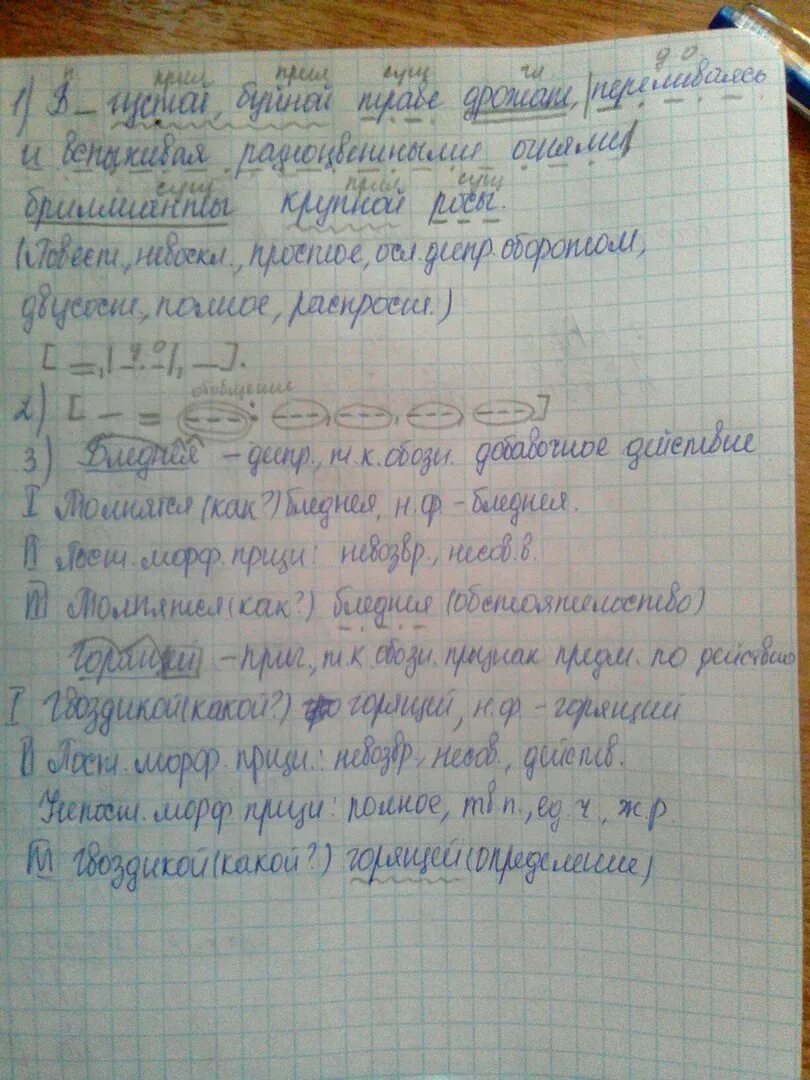 п прил прил сущ гл д о
1) В густой, буйной траве дрожат, |переливаясь
и вспыхивая разноцветными огнями|
сущ прил сущ
бриллианты крупной росы.
(Повест., невоскл., простое, осл. деепр. оборотом,
двусост., полное, распрост.)
[=, |д о|, —].
обобщение
2) [— = : , , , ]
3) Бледнея – деепр., т.к. обозн. добавочное действие
I Толпятся (как?) бледнея, н.ф. – бледнея.
II Пост. морф. призн.: невозвр., несов. в.
III Толпятся (как?) бледнея (обстоятельство)
Горящей – прич., т.к. обозн. признак предм. по действию
I Гвоздикой (какой?) горящей, н.ф. – горящий
II Пост. морф. призн.: невозвр., несов., действ.
Непост. морф призн: полное, тв.п., ед. ч., ж.р.
III Гвоздикой (какой?) горящей (определение)